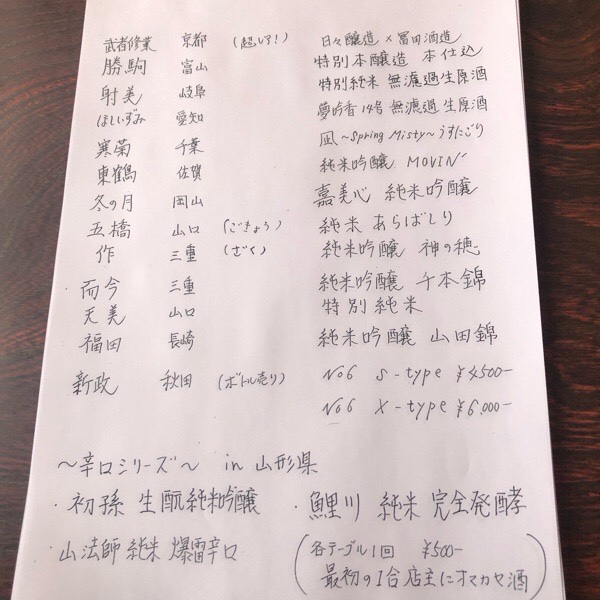 武者修業 京都 (超レア!) 日々醸造 × 冨田酒造
勝駒 富山 特別本醸造 本仕込
射美 岐阜 特別純米 無濾過生原酒
ほしいずみ 愛知 夢吟香 14号 無濾過生原酒
寒菊 千葉 凪 ~Spring Misty~ うすにごり
東鶴 佐賀 純米吟醸 MOVIN'
冬の月 岡山 嘉美心 純米吟醸
五橋 山口 (ごきょう) 純米 あらばしり
作 三重 (ざく) 純米吟醸 神の穂
而今 三重 純米吟醸 千本錦
天美 山口 特別純米
福田 長崎 純米吟醸 山田錦
新政 秋田 (ボトル売り) No6 S-type ¥4,500-
No6 X-type ¥6,000-
~辛口シリーズ~ in 山形県
・初孫 生酛純米吟醸 ・鯉川 純米 完全発酵
山法師 純米 爆雷辛口
(各テーブル1回 ¥500-
最初の1合店主にオマカセ酒)